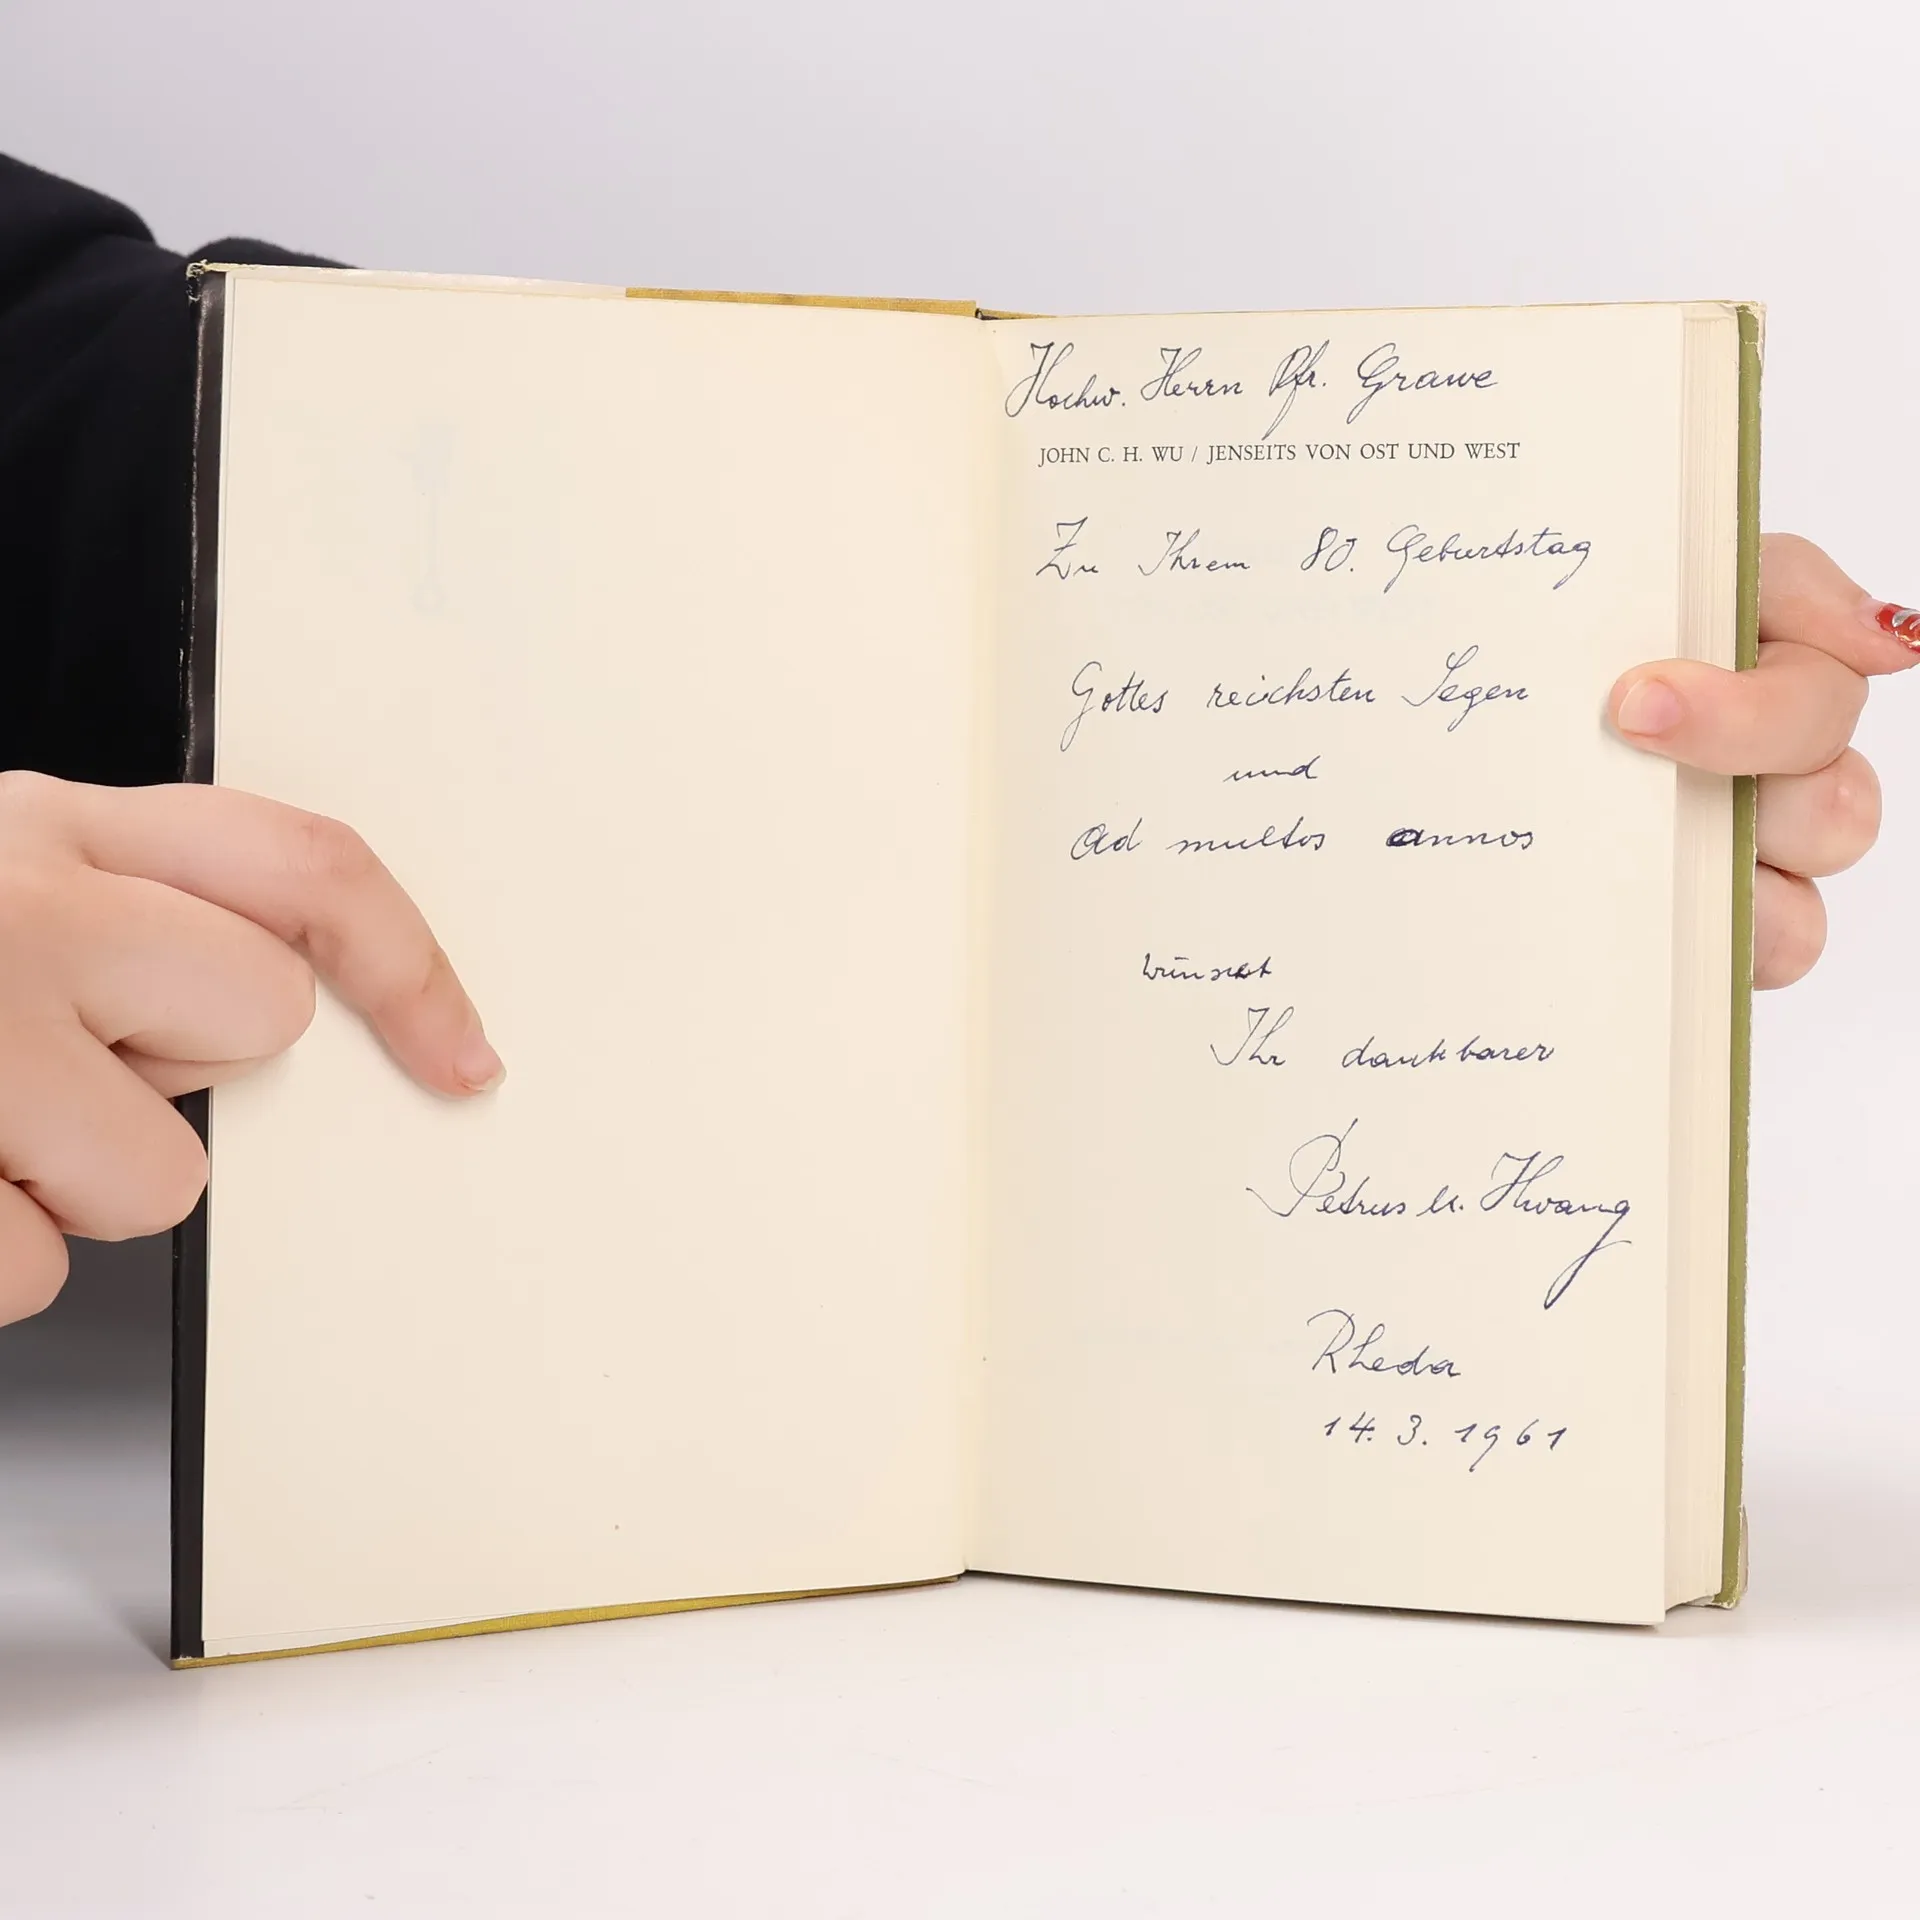 Hochw. Herrn Pfr. Grawe
JOHN C. H. WU / JENSEITS VON OST UND WEST
Zu Ihrem 80. Geburtstag
Gottes reichsten Segen
und
Ad multos annos
wünscht
Ihr dankbarer
Petrus M. Hwang
Rheda
14. 3. 1961